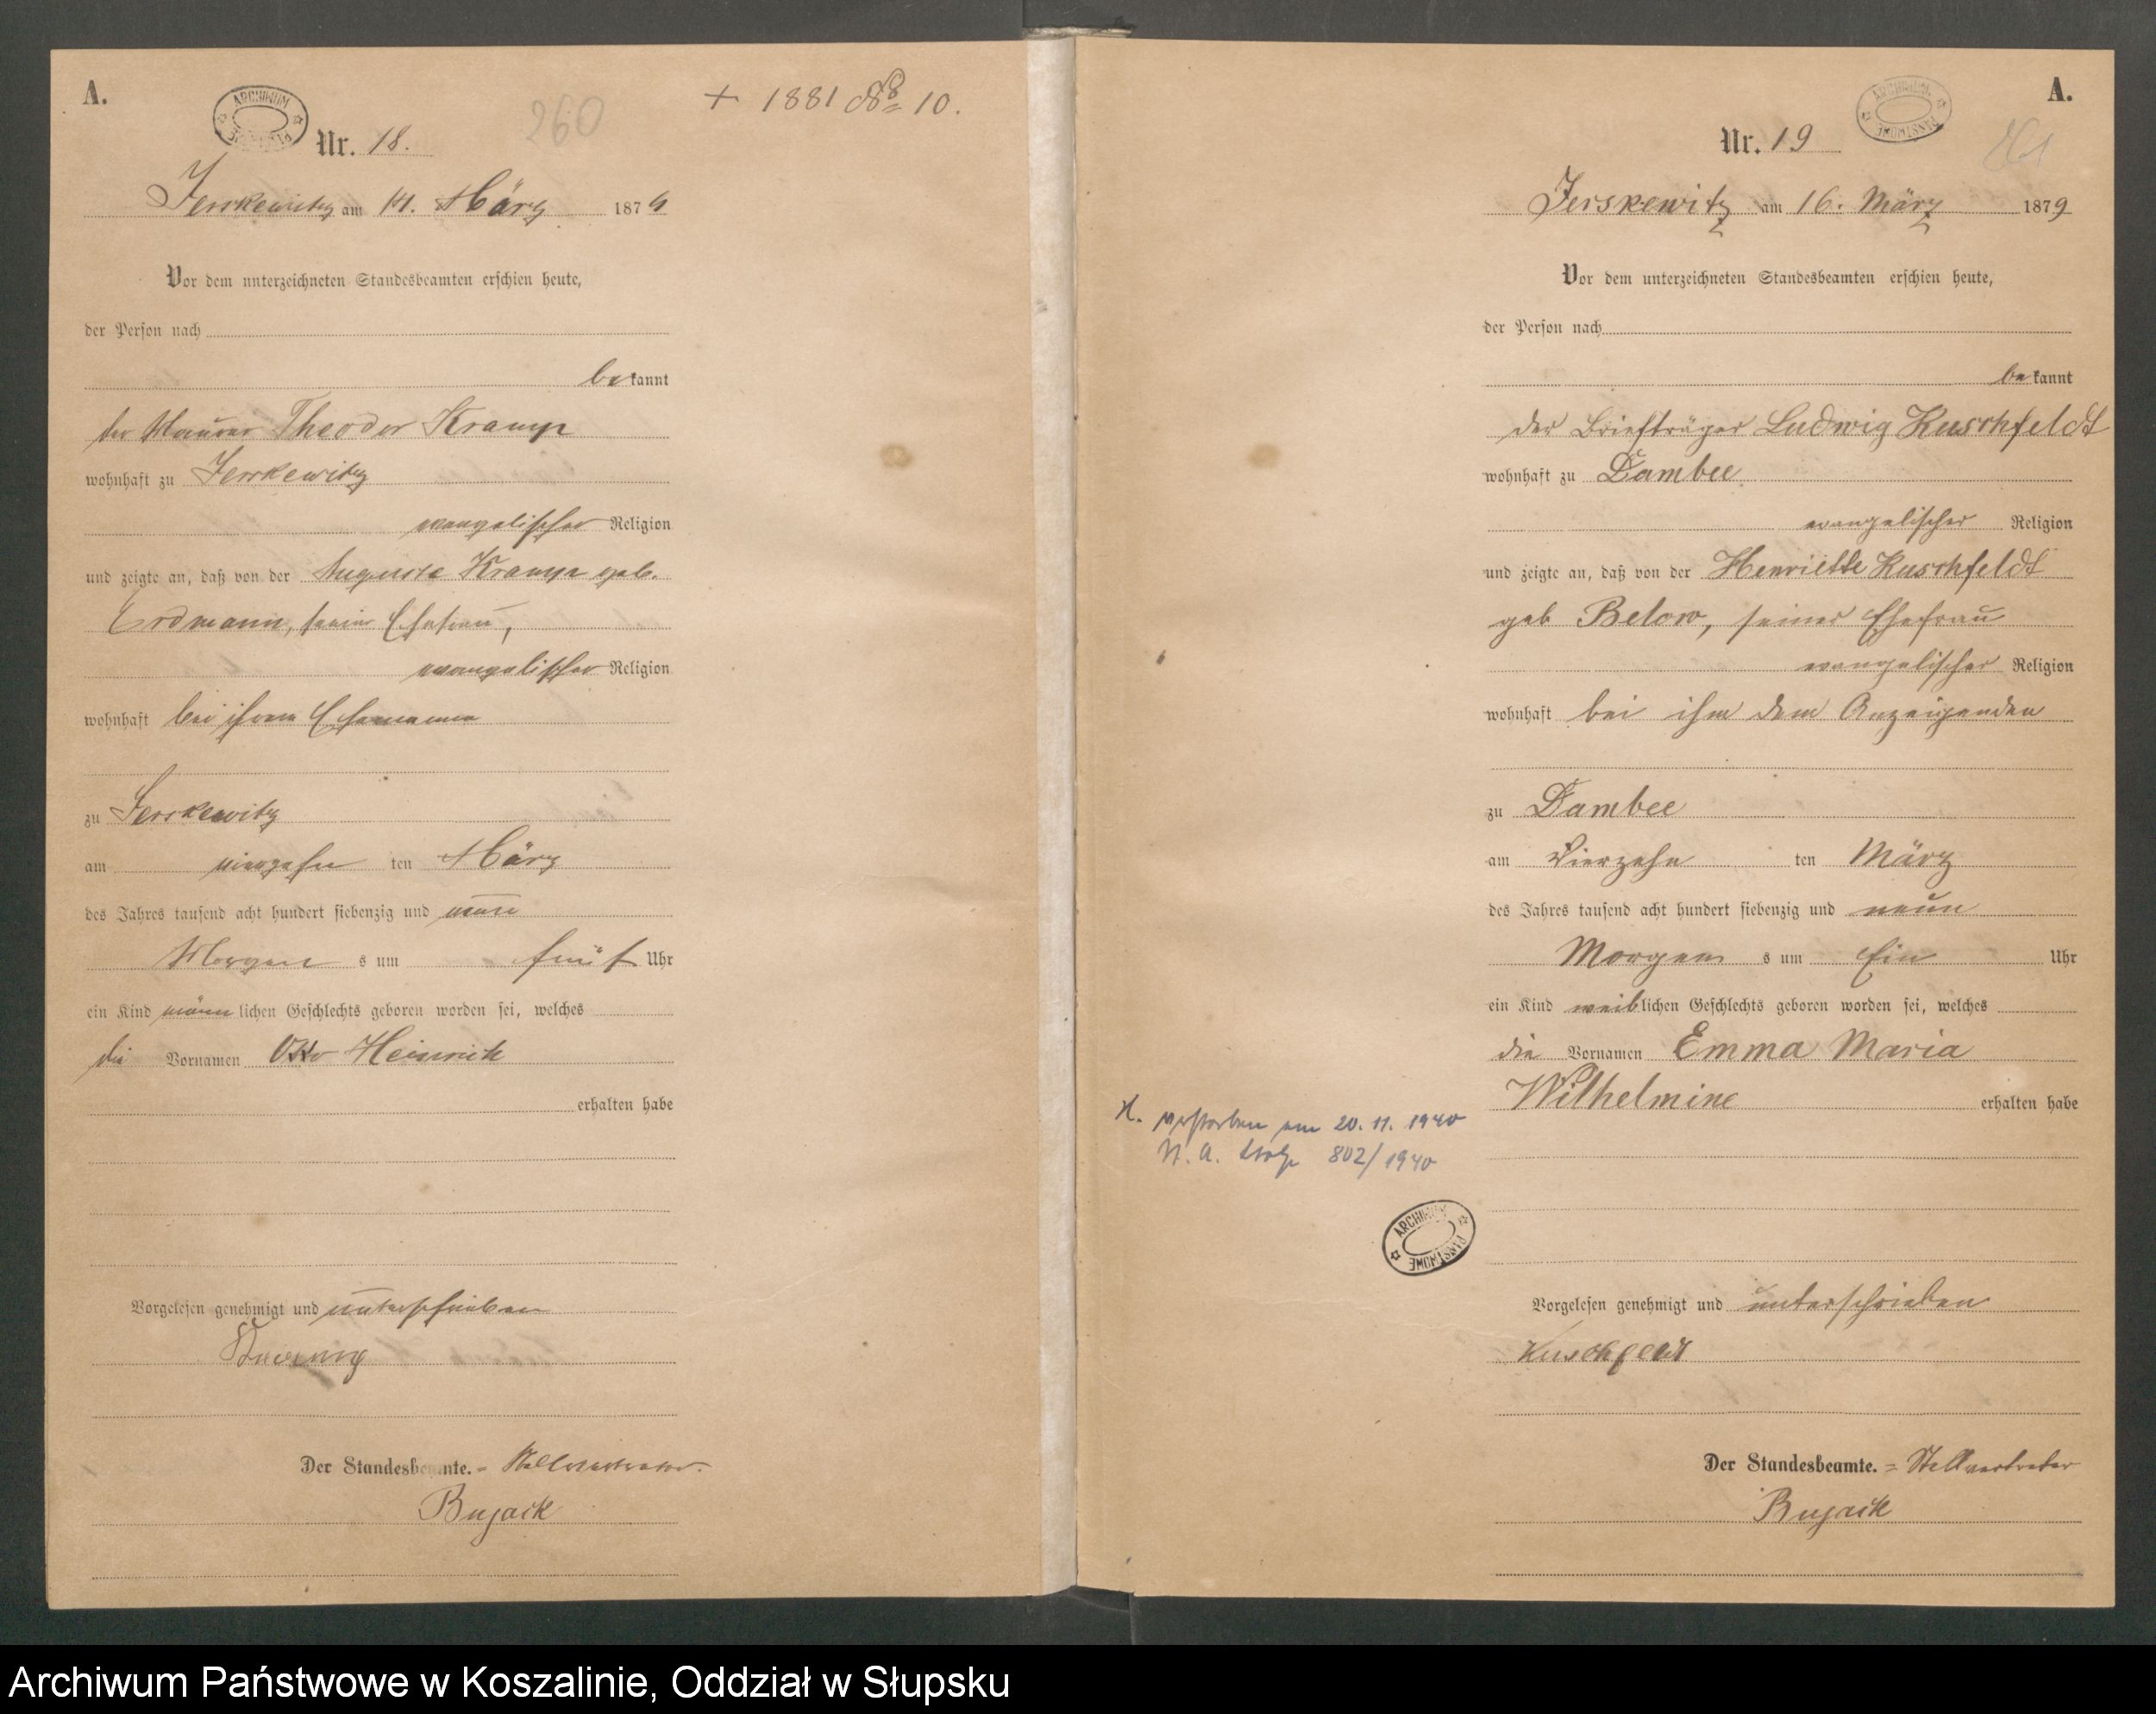 A.
ARCHIWUM PAŃSTWOWE
260
+ 1881 № 10.
Nr. 18.
Jerskewitz am 14. März 1879
Vor dem unterzeichneten Standesbeamten erschien heute,
der Person nach
bekannt
der Maurer Theodor Kramp
wohnhaft zu Jerskewitz
evangelischer Religion
und zeigte an, daß von der Auguste Kramp geb.
Erdmann, seiner Ehefrau,
evangelischer Religion
wohnhaft bei ihrem Ehemanne
zu Jerskewitz
am vierzehn ten März
des Jahres tausend acht hundert siebenzig und neun
Morgen s um fünf Uhr
ein Kind männlichen Geschlechts geboren worden sei, welches
die Vornamen Otto Heinrich
erhalten habe
Vorgelesen genehmigt und unterschrieben
Der Standesbeamte. = Stellvertreter.
Bujack
A.
ARCHIWUM PAŃSTWOWE
261
Nr. 19
Jerskewitz am 16. März 1879
Vor dem unterzeichneten Standesbeamten erschien heute,
der Person nach
bekannt
der Briefträger Ludwig Kuschfeldt
wohnhaft zu Dambee
evangelischer Religion
und zeigte an, daß von der Henriette Kuschfeldt
geb Below, seiner Ehefrau
evangelischer Religion
wohnhaft bei ihm dem Anzeigenden
zu Dambee
am Vierzehn ten März
des Jahres tausend acht hundert siebenzig und neun
Morgen s um Ein Uhr
ein Kind weiblichen Geschlechts geboren worden sei, welches
die Vornamen Emma Maria
Wilhelmine erhalten habe
verstorben am 20. 11. 1940
St. A. Stolp 802/1940
ARCHIWUM PAŃSTWOWE
Vorgelesen genehmigt und unterschrieben
Kuschfeldt
Der Standesbeamte. = Stellvertreter
Bujack
Archiwum Państwowe w Koszalinie, Oddział w Słupsku